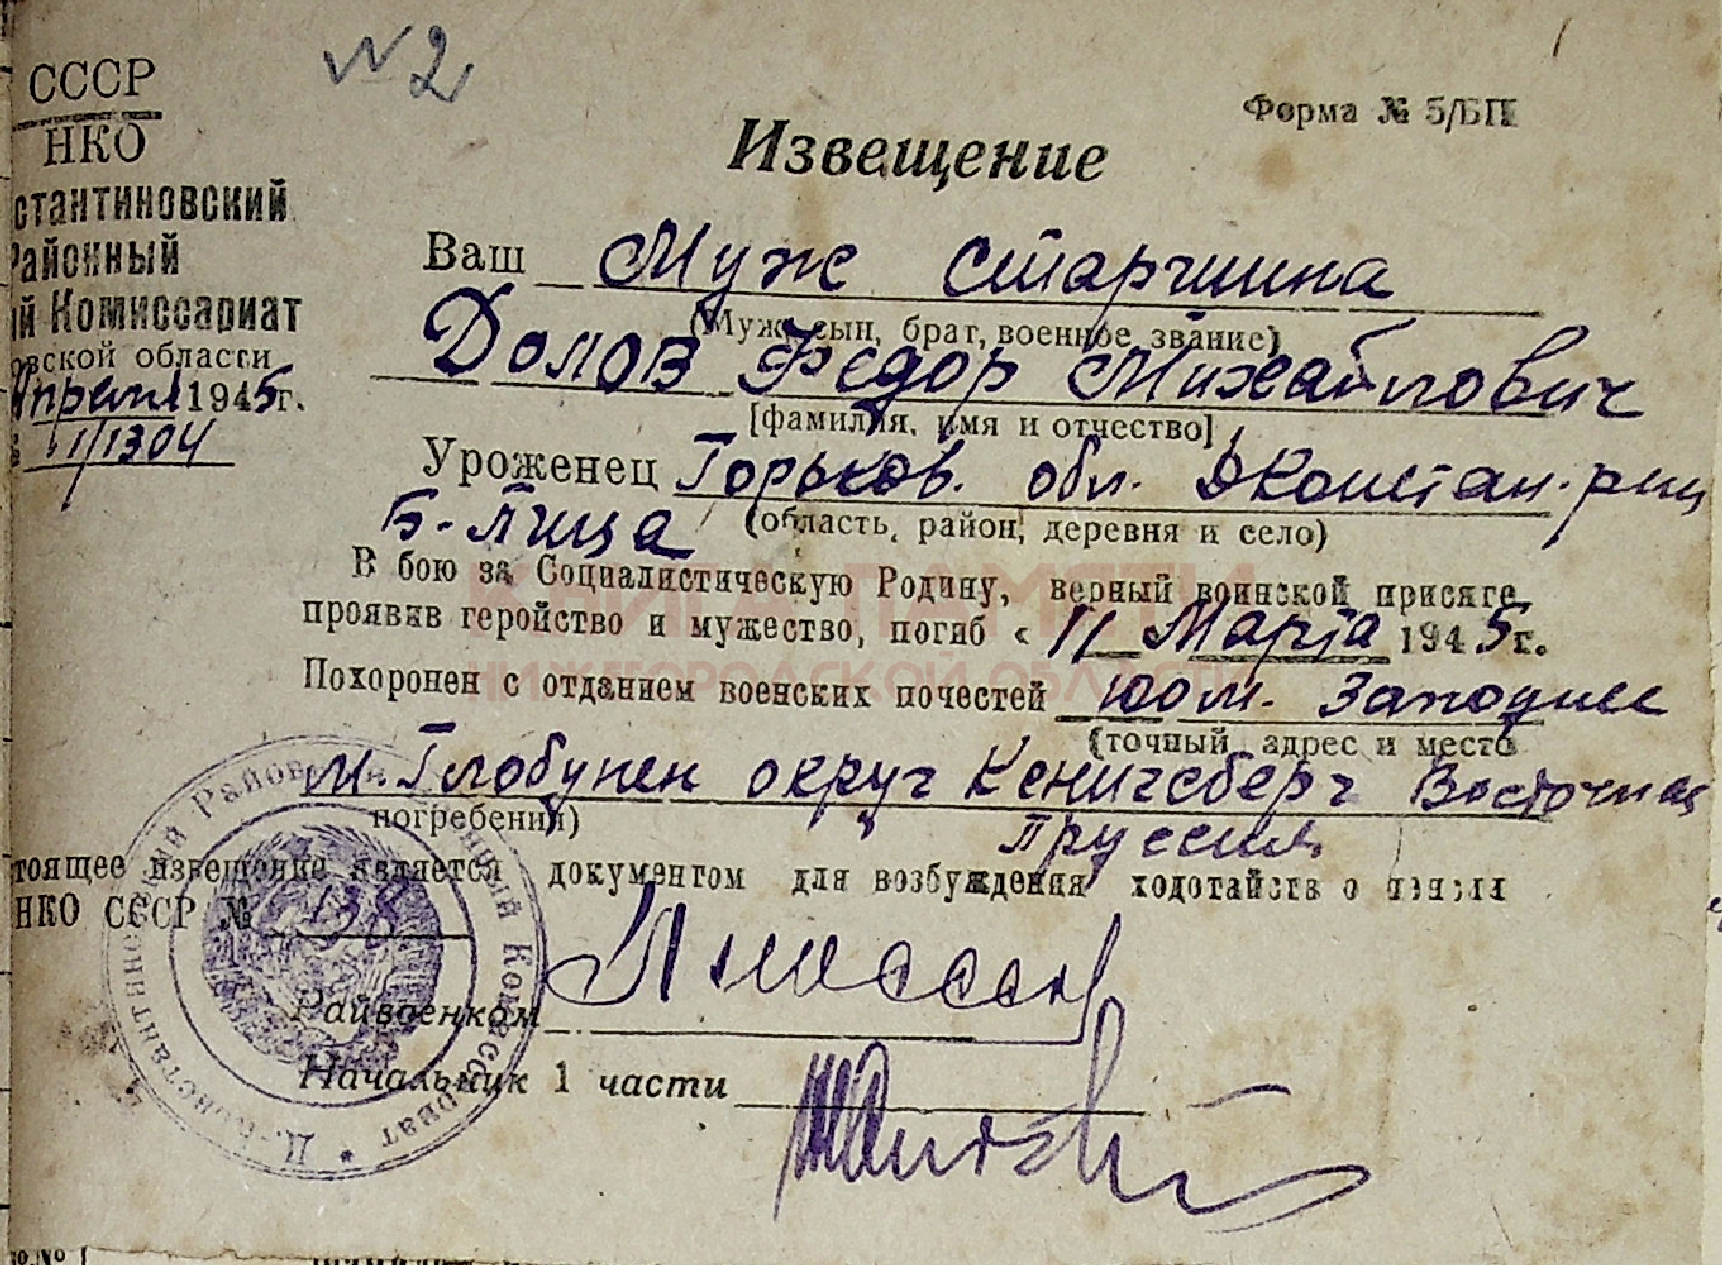 №2
СССР
НКО
стантиновский
Районный
ий Комиссариат
овской области
Апреля 1945г.
11/1304
Форма № 5/БП
Извещение
Ваш Муж старшина
(Муж, сын, брат, военное звание)
Долов Федор Михайлович
[фамилия, имя и отчество]
Уроженец Горьков. обл. ДКонстан. р-н
Б-Пица (область, район, деревня и село)
В бою за Социалистическую Родину, верный воинской присяге,
проявив геройство и мужество, погиб « 11 Марта 1945г.
КНИГА ПАМЯТИ
НИЖЕГОРОДСКОЙ ОБЛАСТИ
Похоронен с отданием военских почестей 100 м. Западнее
(точный адрес и место
м. Глобунен округ Кенигсберг Восточная
погребения) Пруссия
тоящее извещение является документом для возбуждения ходотайств о пензии
НКО СССР № 138
Райвоенком
Начальник 1 части
Д.-Константиновский Районный Военный Комиссариат